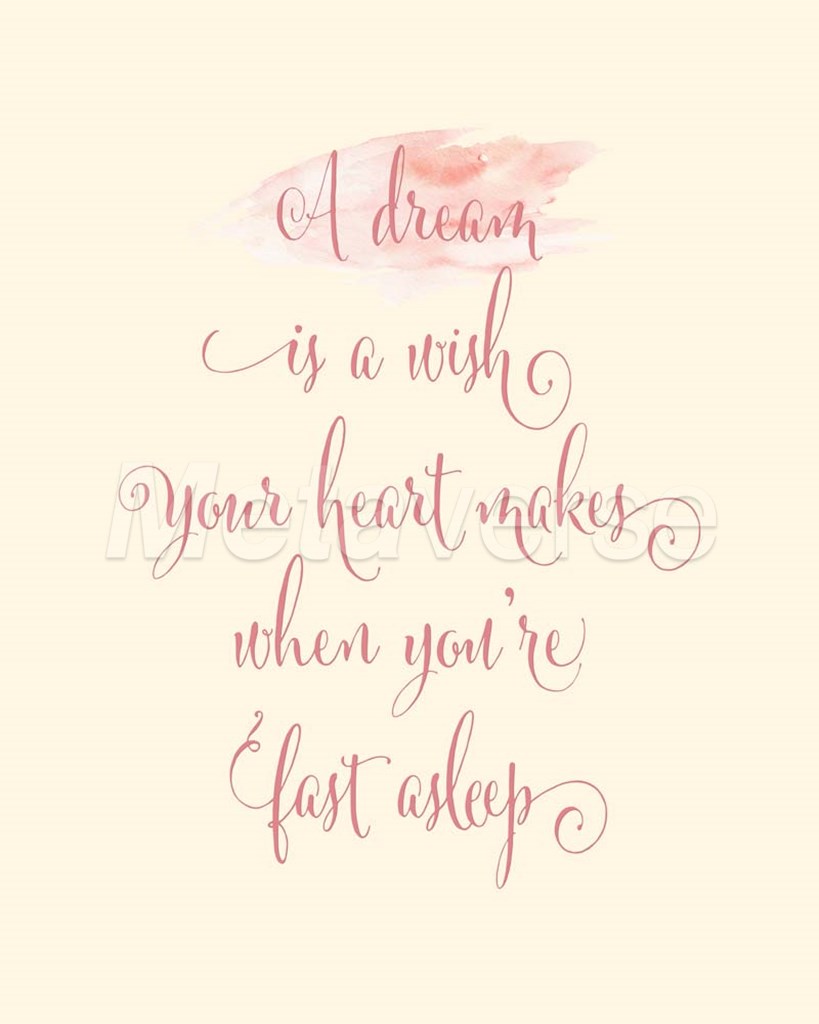 A dream
is a wish
your heart makes
Metaverse
when you're
fast asleep